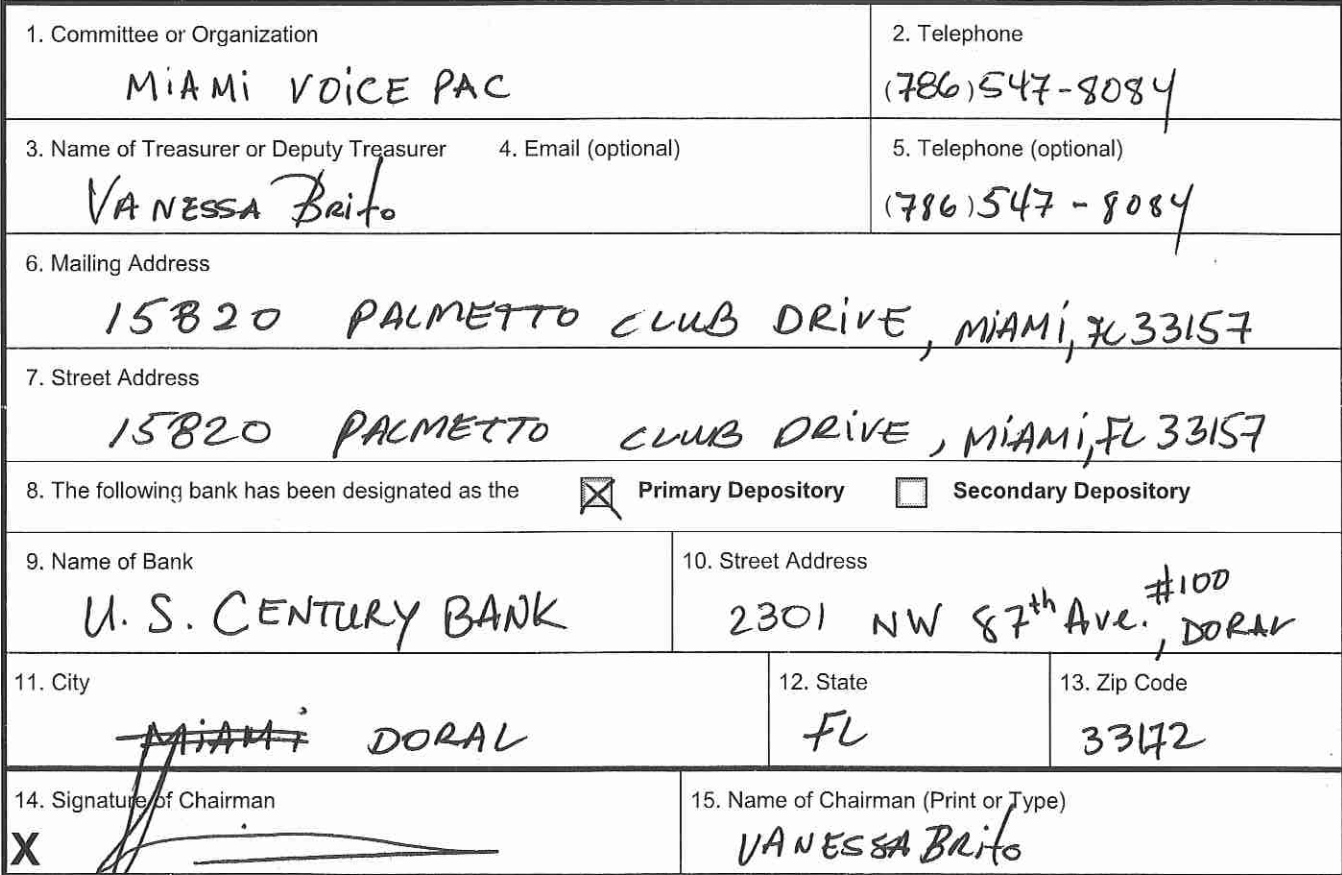 1. Committee or Organization
MiAMi VOiCE PAC
2. Telephone
(786)547-8084
3. Name of Treasurer or Deputy Treasurer
VANESSA Brito
4. Email (optional)
5. Telephone (optional)
(786)547-8084
6. Mailing Address
15820 PALMETTO CLUB DRiVE, MiAMi, FL 33157
7. Street Address
15820 PALMETTO CLUB DRiVE, MiAMi, FL 33157
8. The following bank has been designated as the Primary Depository Secondary Depository
9. Name of Bank
U.S. CENTURY BANK
10. Street Address
2301 NW 87th Ave. #100, DORAL
11. City
MiAMi DORAL
12. State
FL
13. Zip Code
33172
14. Signature of Chairman
X
15. Name of Chairman (Print or Type)
VANESSA BRito